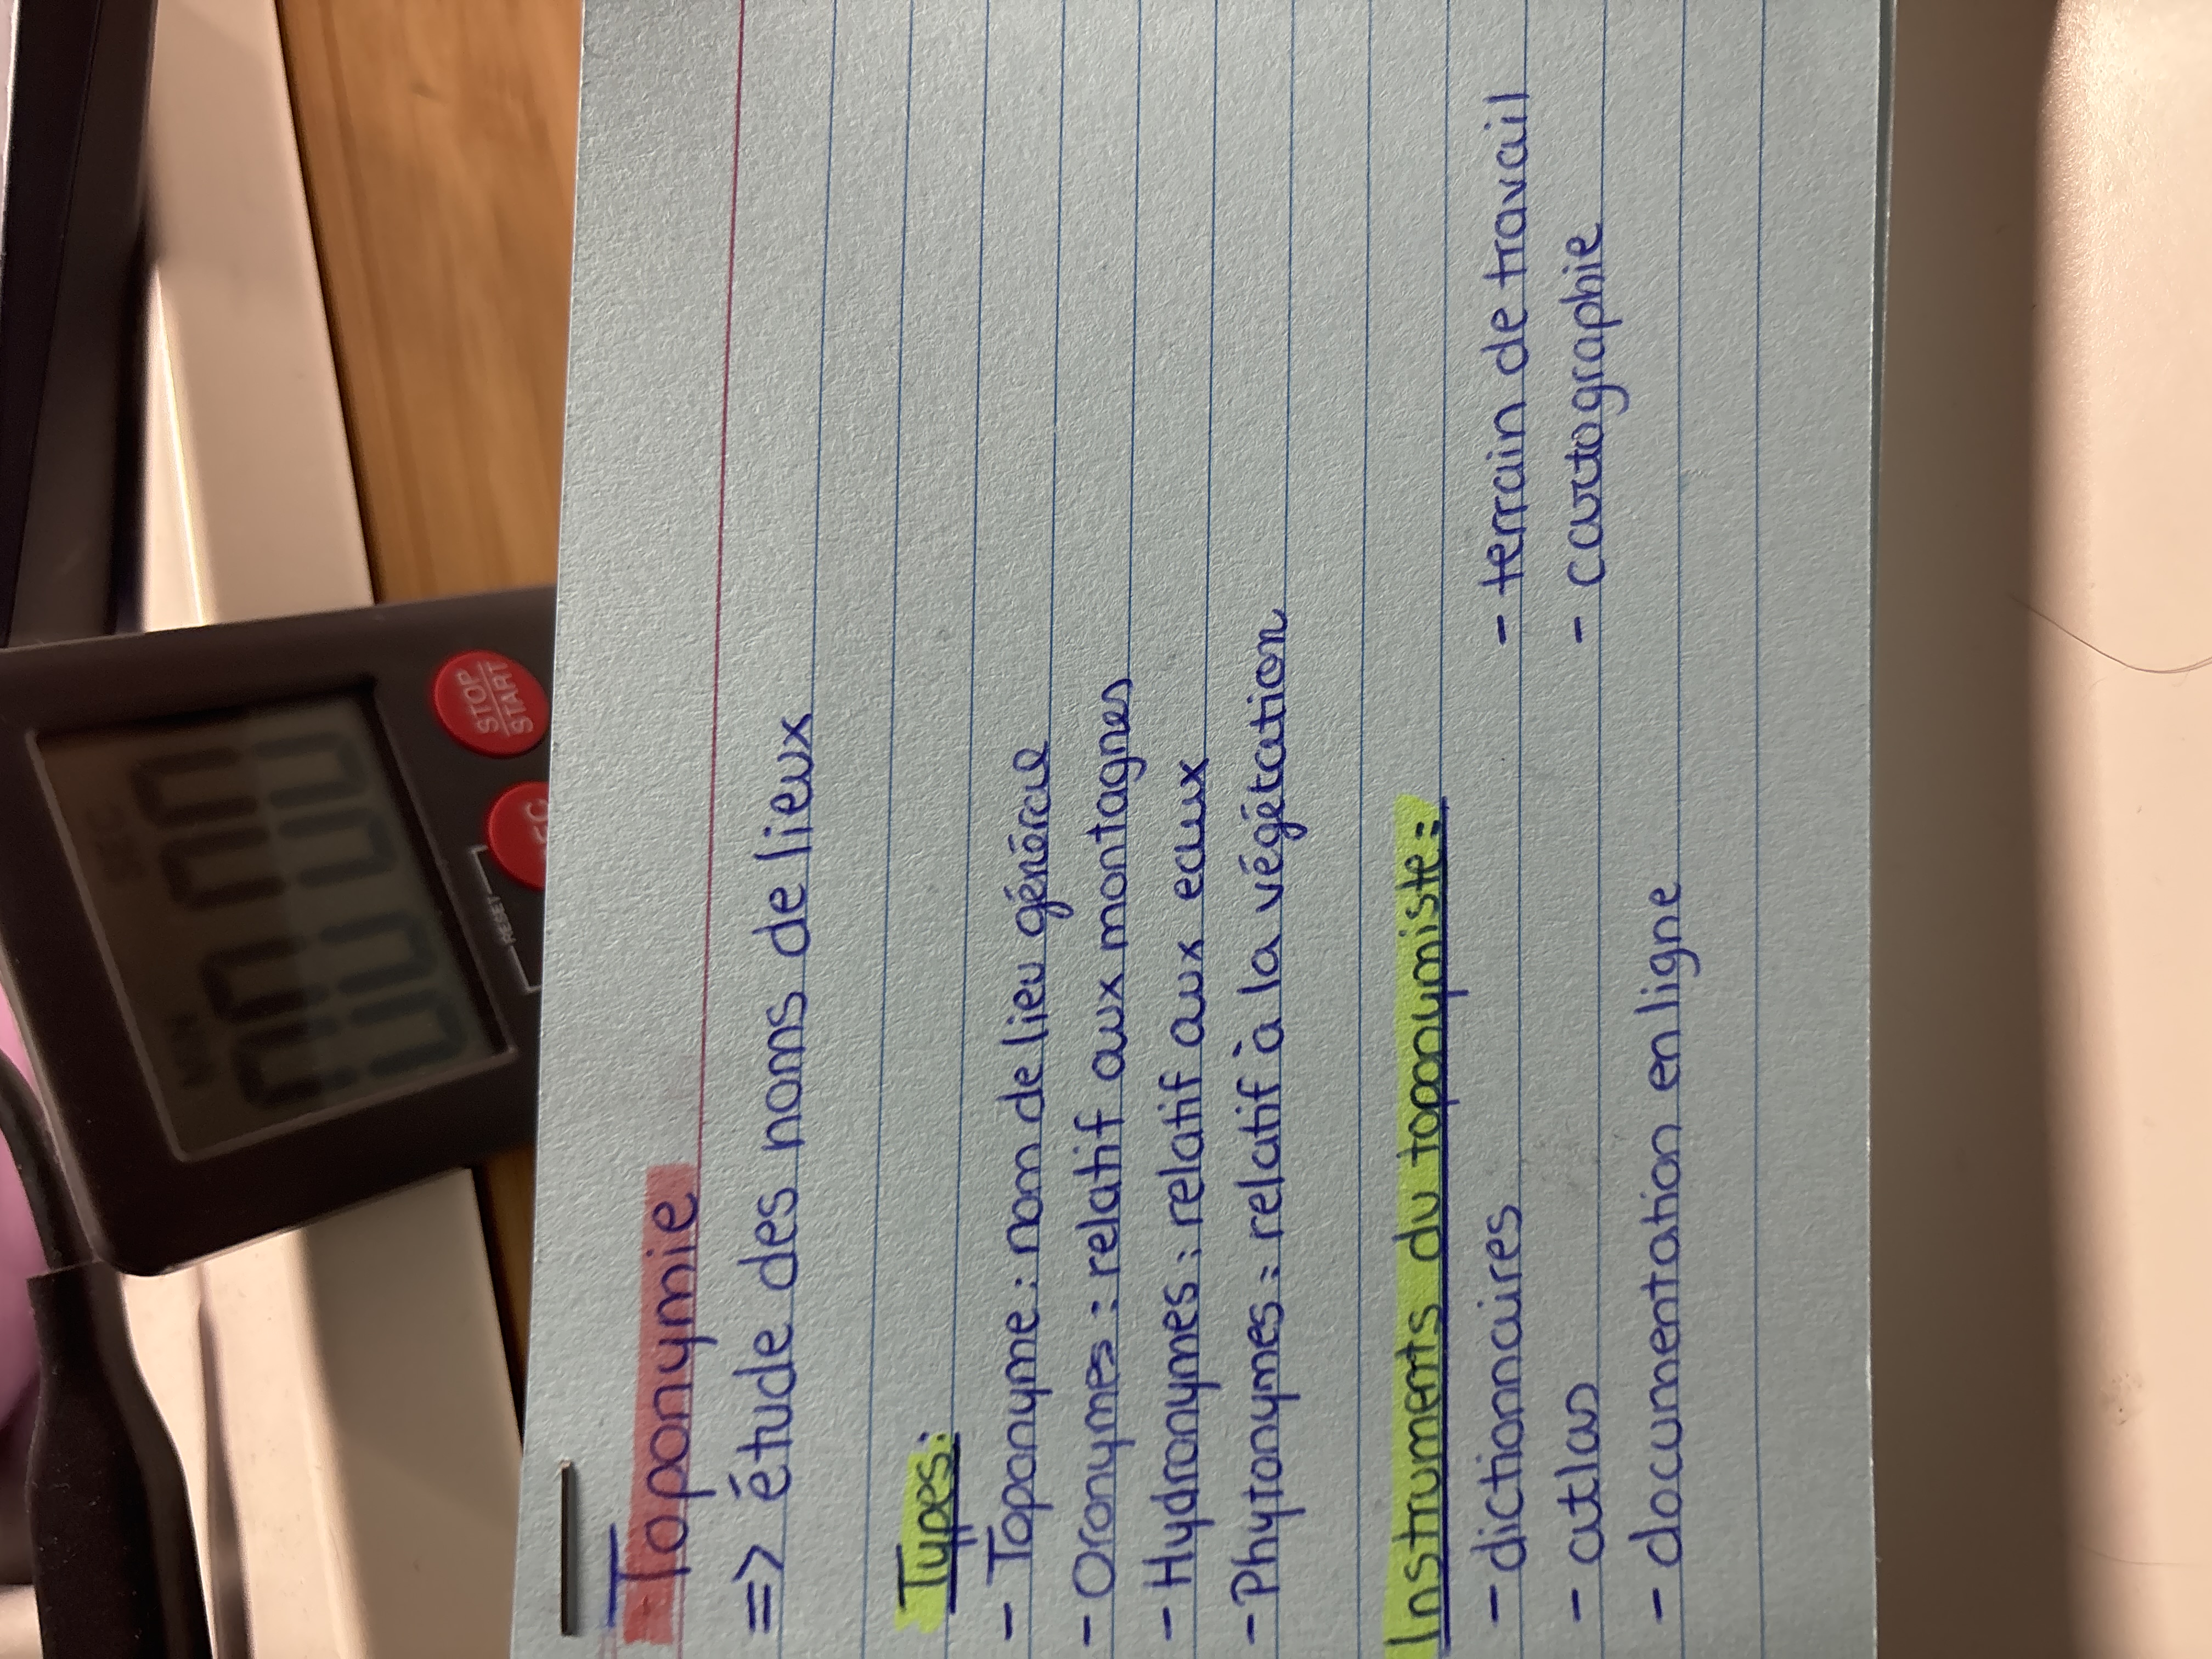 MIN SEC
00 00
RESET
SEC
STOP
START
Toponymie
=> étude des noms de lieux
Types:
- Toponyme : nom de lieu général
- Oronymes : relatif aux montagnes
- Hydronymes : relatif aux eaux
- Phytonymes : relatif à la végétation
Instruments du toponymiste :
- dictionnaires
- atlas
- documentation en ligne
- terrain de travail
- cartographie